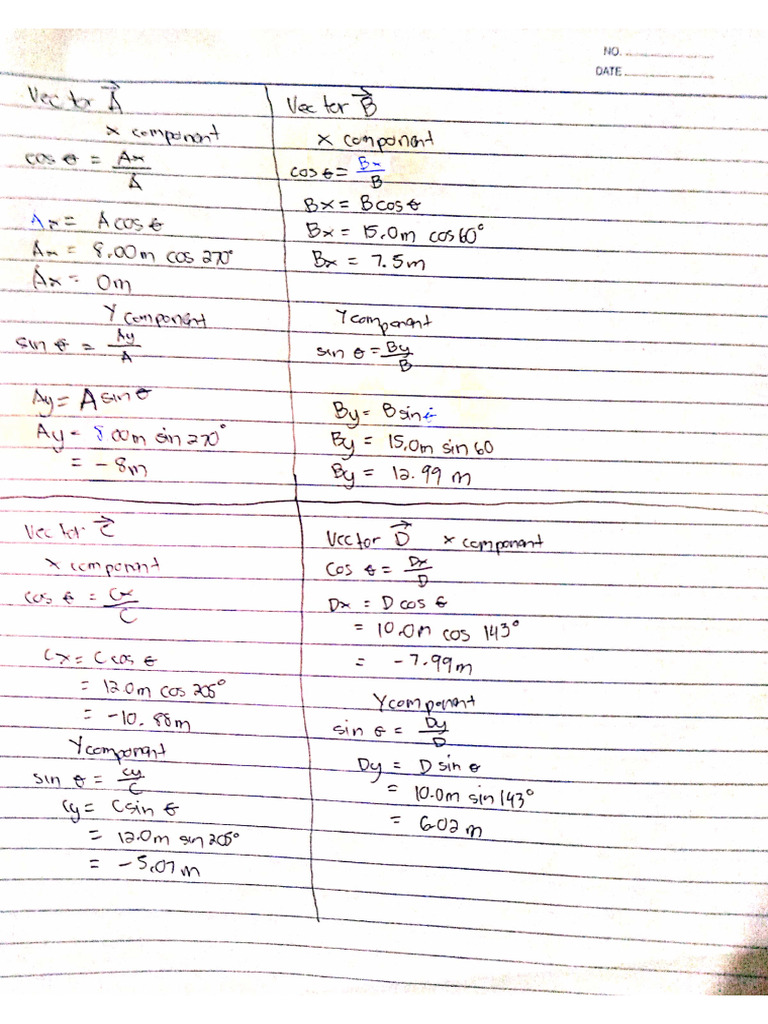 NO.
DATE
Vector A
x component
cos θ = Ax/A
Ax = A cos θ
Ax = 8.00m cos 270°
Ax = 0m
Y component
sin θ = Ay/A
Ay = A sin θ
Ay = 8.00m sin 270°
= -8m
Vector B
x component
cos θ = Bx/B
Bx = B cos θ
Bx = 15.0m cos 60°
Bx = 7.5m
Y component
sin θ = By/B
By = B sin θ
By = 15.0m sin 60
By = 12.99 m
Vector C
x component
cos θ = Cx/C
Cx = C cos θ
= 12.0m cos 205°
= -10.88m
Y component
sin θ = Cy/C
Cy = C sin θ
= 12.0m sin 205°
= -5.07m
Vector D x component
cos θ = Dx/D
Dx = D cos θ
= 10.0m cos 143°
= -7.99m
Y component
sin θ = Dy/D
Dy = D sin θ
= 10.0m sin 143°
= 6.02m